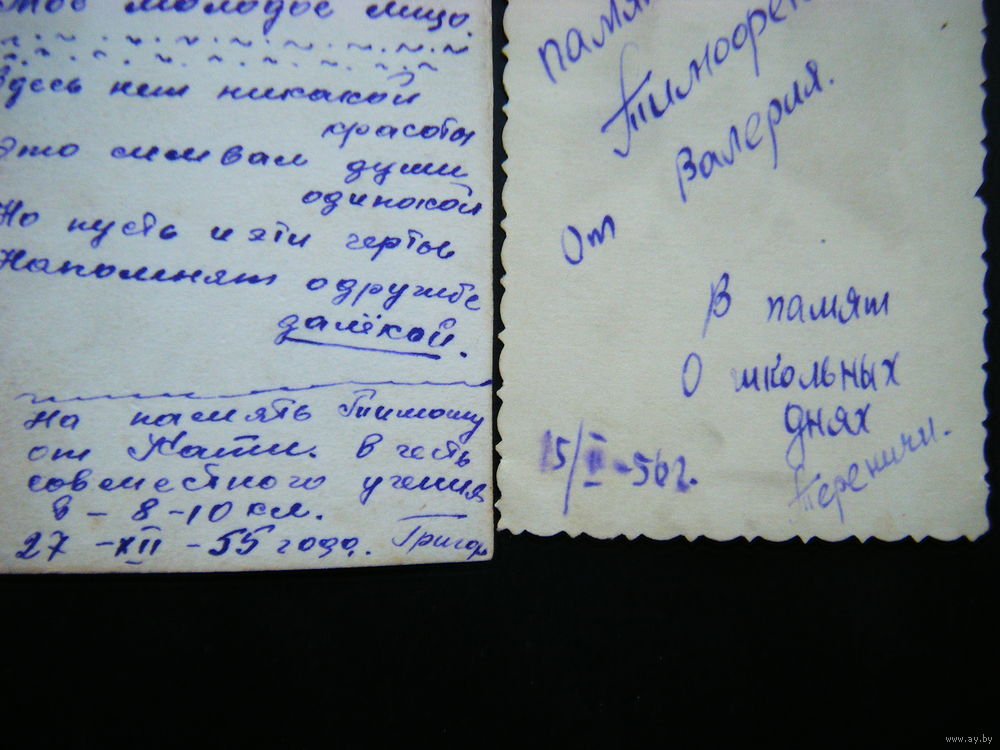 молодое лицо.
Здесь нет никакой
красоты
Это символ души
одинокой
Но пусть и эти черты
Напомнят о дружбе
далёкой.
На память
от Кати. В честь
совместного учения
в - 8-10 кл.
27 -XII - 55 года. Григор
От Валерия.
В памят
О школьных
днях
15/II-56г.
www.ay.by